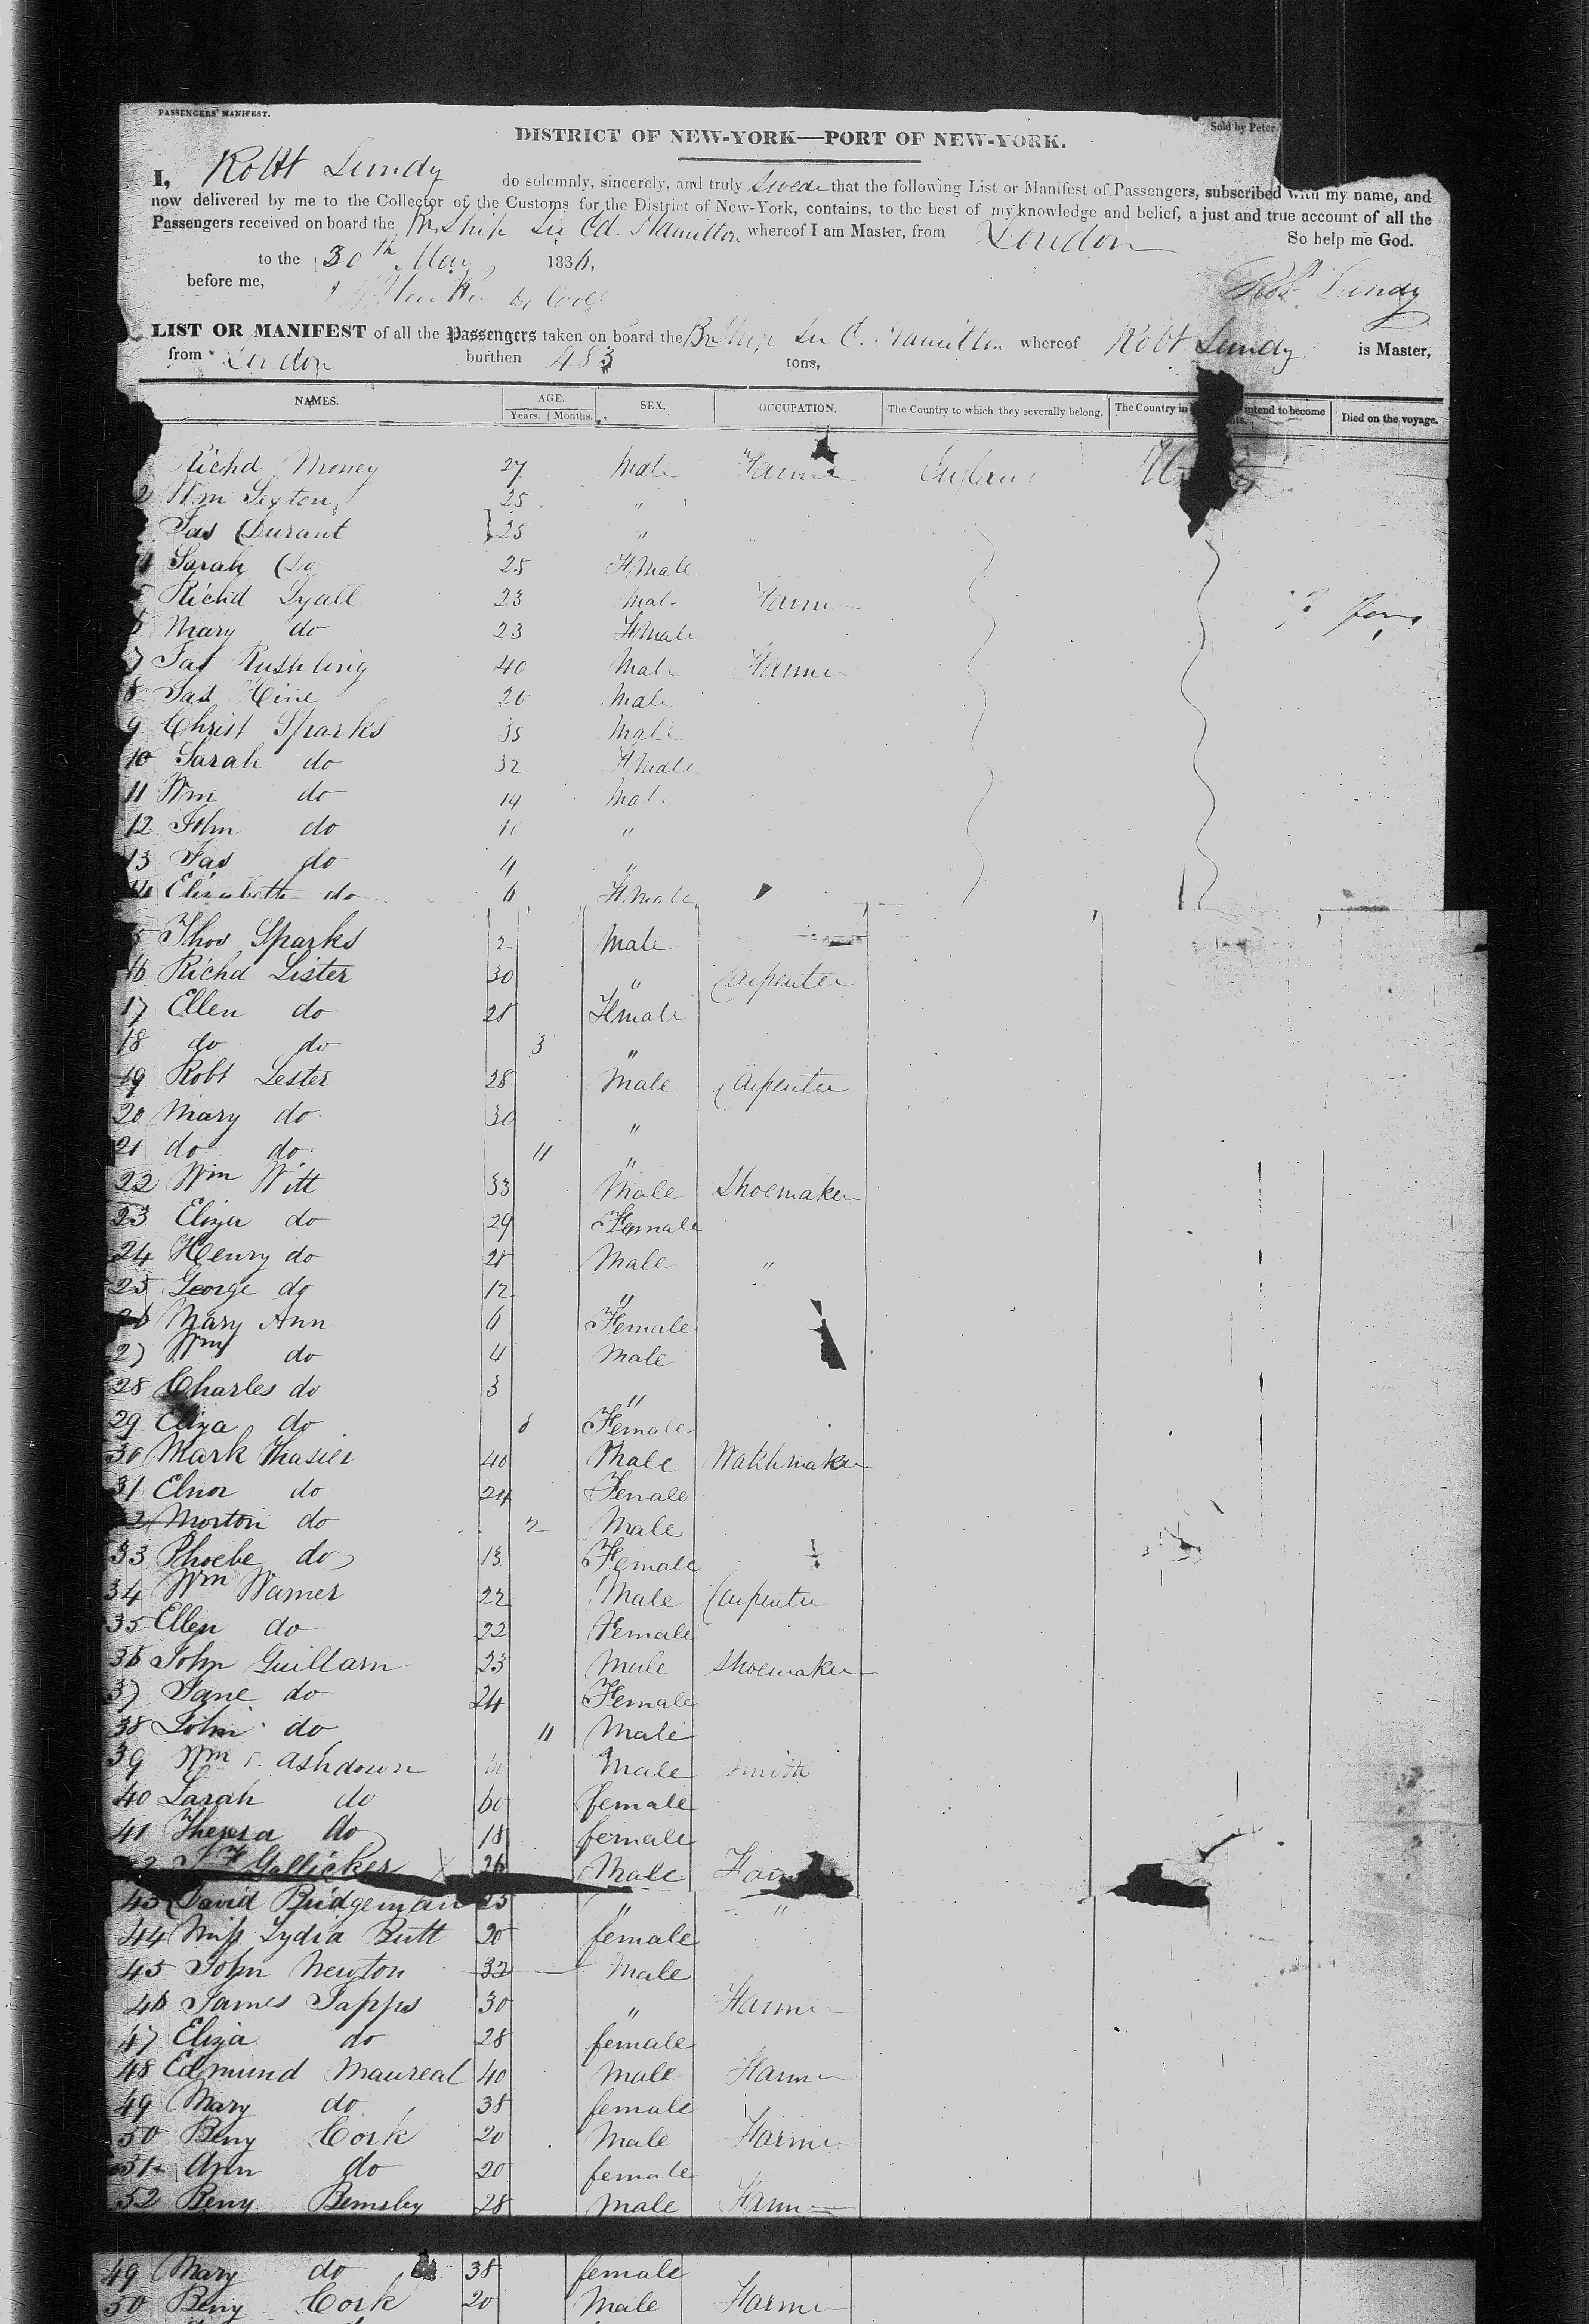 PASSENGERS' MANIFEST.
Sold by Peter
DISTRICT OF NEW-YORK—PORT OF NEW-YORK.
I, Robt Lundy do solemnly, sincerely, and truly that the following List or Manifest of Passengers, subscribed with my name, and
now delivered by me to the Collector of the Customs for the District of New-York, contains, to the best of my knowledge and belief, a just and true account of all the
Passengers received on board the Ship Hamilton whereof I am Master, from London
So help me God.
to the 30th May 1836,
before me,
Robt Lundy
LIST OR MANIFEST of all the Passengers taken on board the Br Ship Hamilton whereof Robt Lundy is Master,
from London burthen 483 tons,
NAMES. AGE. SEX. OCCUPATION. The Country to which they severally belong. The Country in intend to become Died on the voyage.
Years. Months.
Richd Money 27 Male Farmer England
2 Wm Sexton 25 "
Jas Durant 25 "
4 Sarah Do 25 Female
5 Richd Lyall 23 Male
6 Mary do 23 Female
7 Jas Rushling 40 Male
8 Jas Hine 20 Male
9 Christ Sparks 35 Male
10 Sarah do 32 Female
11 Wm do 14 Male
12 John do "
13 Jas do 4 "
14 Elizabeth do 6 Female
5 Thos Sparks 2 Male
16 Richd Lister 30 " Carpenter
17 Ellen do 28 Female
18 do do 3 "
19 Robt Lester 28 Male Carpenter
20 Mary do 30 "
21 do do 11 "
22 Wm Witt 33 Male Shoemaker
23 Eliza do 29 Female
24 Henry do Male "
25 George do 12 "
26 Mary Ann 6 Female
27 Wm do 4 Male
28 Charles do 3 "
29 Eliza do Female
30 Mark 40 Male Watchmaker
31 Elnor do 24 Female
32 Morton do 2 Male
33 Phoebe do 13 Female
34 Wm Warner 22 Male Carpenter
35 Ellen do 22 Female
36 John Guillarn 23 Male Shoemaker
37 Jane do 24 Female
38 John do 11 Male
39 Wm Ashdown Male Smith
40 Sarah do 60 female
41 Theresa do 18 female
Gollicker 26 Male
43 David Bridgeman 25 " "
44 Miss Lydia Butt 20 female
45 John Newton 32 Male
46 James Tapps 30 " Farmer
47 Eliza do 28 female
48 Edmund Maureal 40 Male Farmer
49 Mary do 38 female
50 Benj Cork 20 Male Farmer
51 Ann do 20 female
52 Benj Bemsley 28 Male Farmer
49 Mary do 38 female
50 Benj Cork 20 Male Farmer